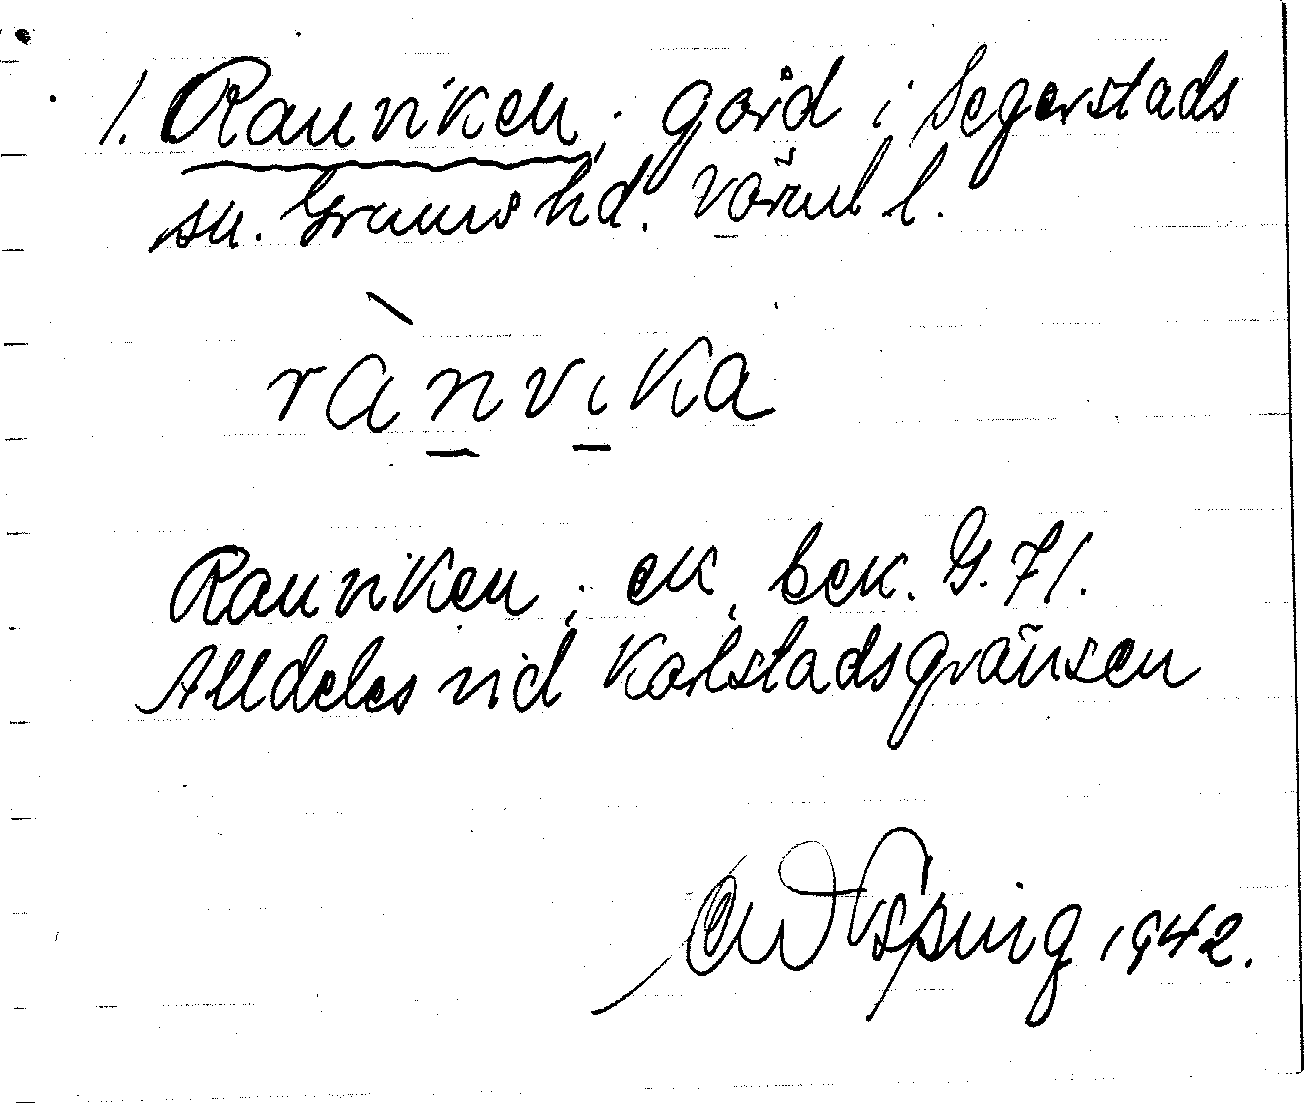 1. Ranviken; gård i Segerstads
sn. Grums hd. Värml l.
rànvika
Ranviken; ek, bek. G. 71.
Alldeles vid Karlstadsgränsen
1942.